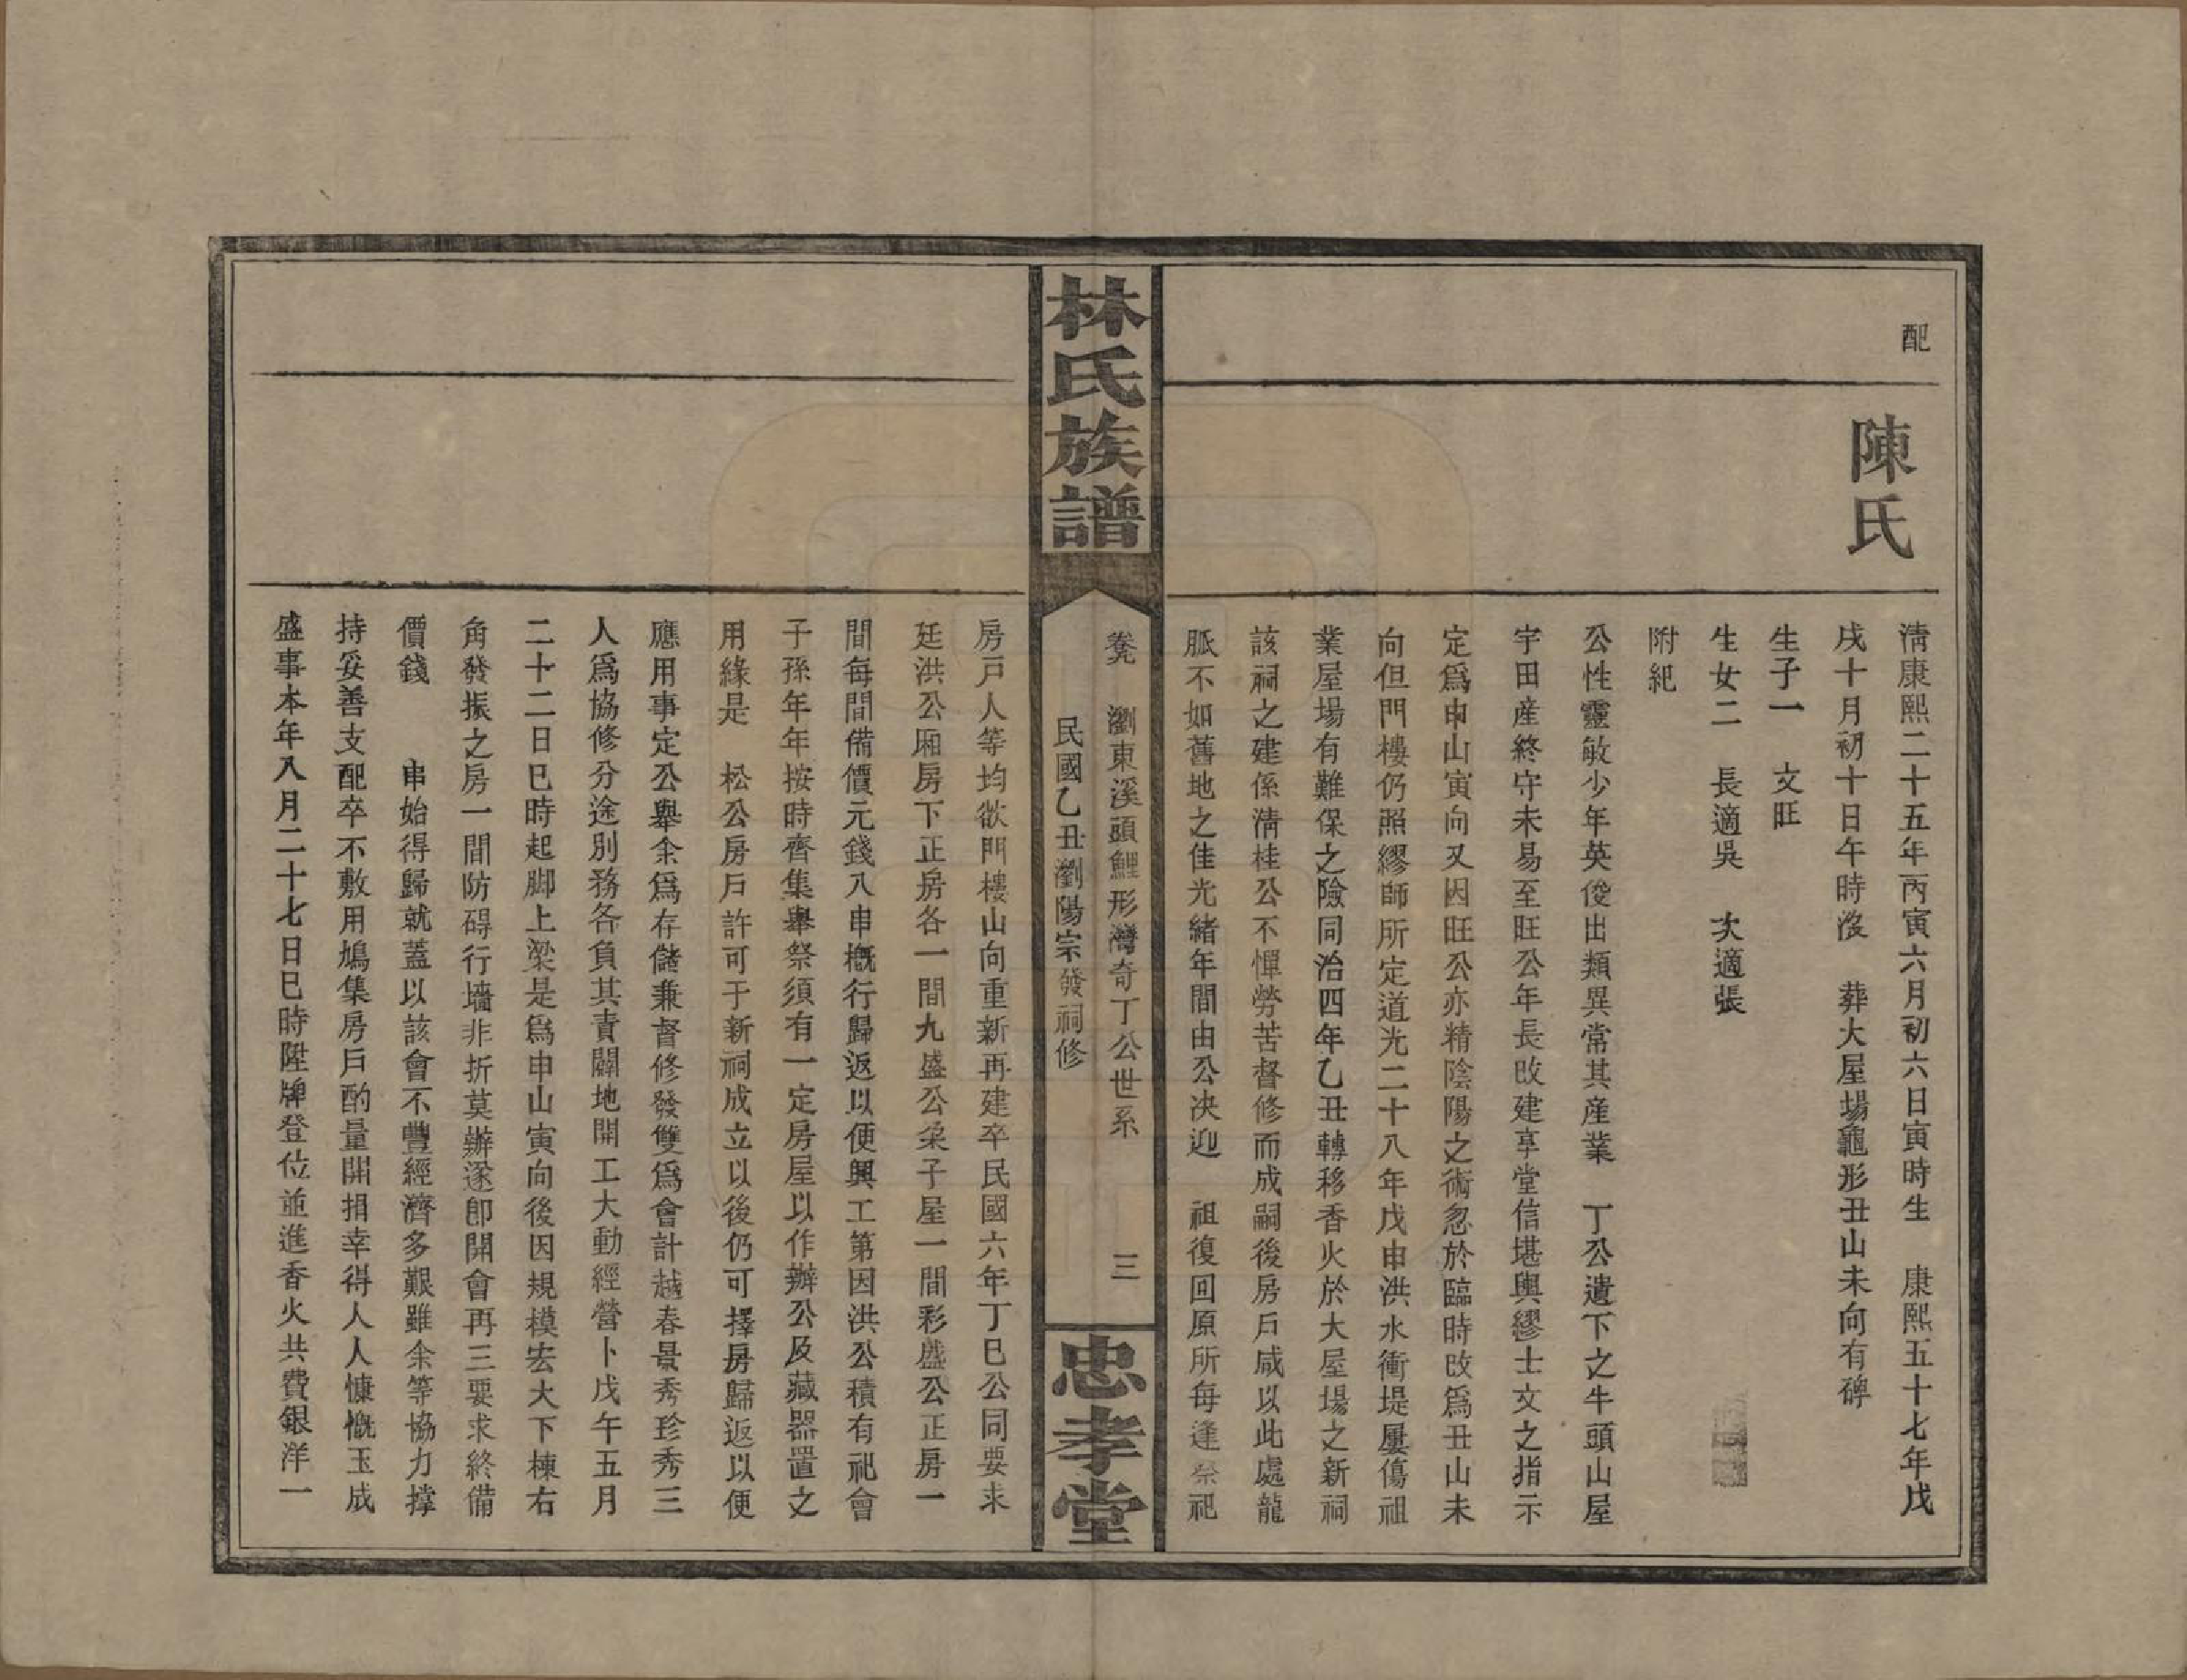 配
陳氏
清康熙二十五年丙寅六月初六日寅時生　康熙五十七年戊
戌十月初十日午時歿　葬大屋場龜形丑山未向有碑
生子一　文旺
生女二　長適吳　次適張
附紀
公性靈敏少年英俊出類異常其產業　丁公遺下之牛頭山屋
宇田產終守未易至旺公年長改建享堂信堪輿繆士文之指示
定爲申山寅向又因旺公亦精陰陽之術忽於臨時改爲丑山未
向但門樓仍照繆師所定道光二十八年戊申洪水衝堤屢傷祖
業屋場有難保之險同治四年乙丑轉移香火於大屋場之新祠
該祠之建係清桂公不憚勞苦督修而成嗣後房戶咸以此處龍
脈不如舊地之佳光緒年間由公決迎　祖復回原所每逢祭祀
林氏族譜
卷　瀏東溪頭鯉形灣奇丁公世系　三
民國乙丑瀏陽宗發祠修
忠孝堂
房戶人等均欲門樓山向重新再建卒民國六年丁巳公同要求
廷洪公廂房下正房各一間九盛公柒子屋一間彩盛公正房一
間每間備價元錢八串概行歸返以便興工第因洪公積有祀會
子孫年年按時齊集舉祭須有一定房屋以作辦公及藏器置之
用緣是　松公房戶許可于新祠成立以後仍可擇房歸返以便
應用事定公舉余爲存儲兼督修發雙爲會計越春景秀珍秀三
人爲協修分途別務各負其責闢地開工大動經營卜戊午五月
二十二日巳時起脚上梁是爲申山寅向後因規模宏大下棟右
角發振之房一間防碍行墻非折莫辦遂卽開會再三要求終備
價錢　　串始得歸就蓋以該會不豐經濟多艱雖余等協力撐
持妥善支配卒不敷用鳩集房戶酌量開捐幸得人人慷慨玉成
盛事本年八月二十七日巳時陞牌登位並進香火共費銀洋一